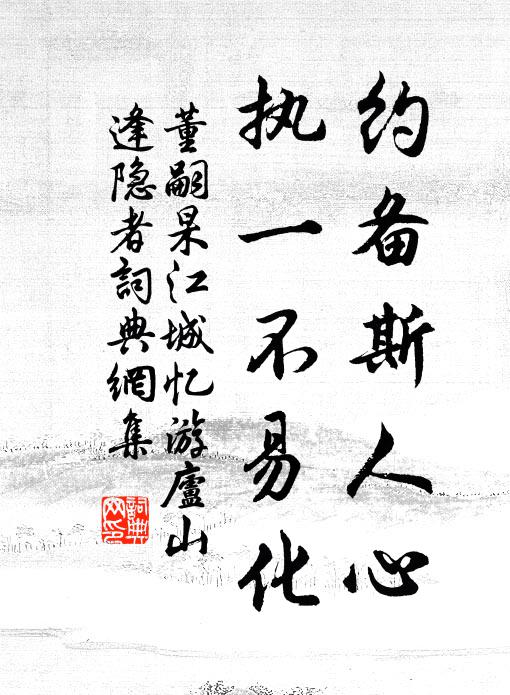 约备斯人心
执一不易化
董嗣杲江城忆游廬山
逢隐者詞典網集
詞典网印